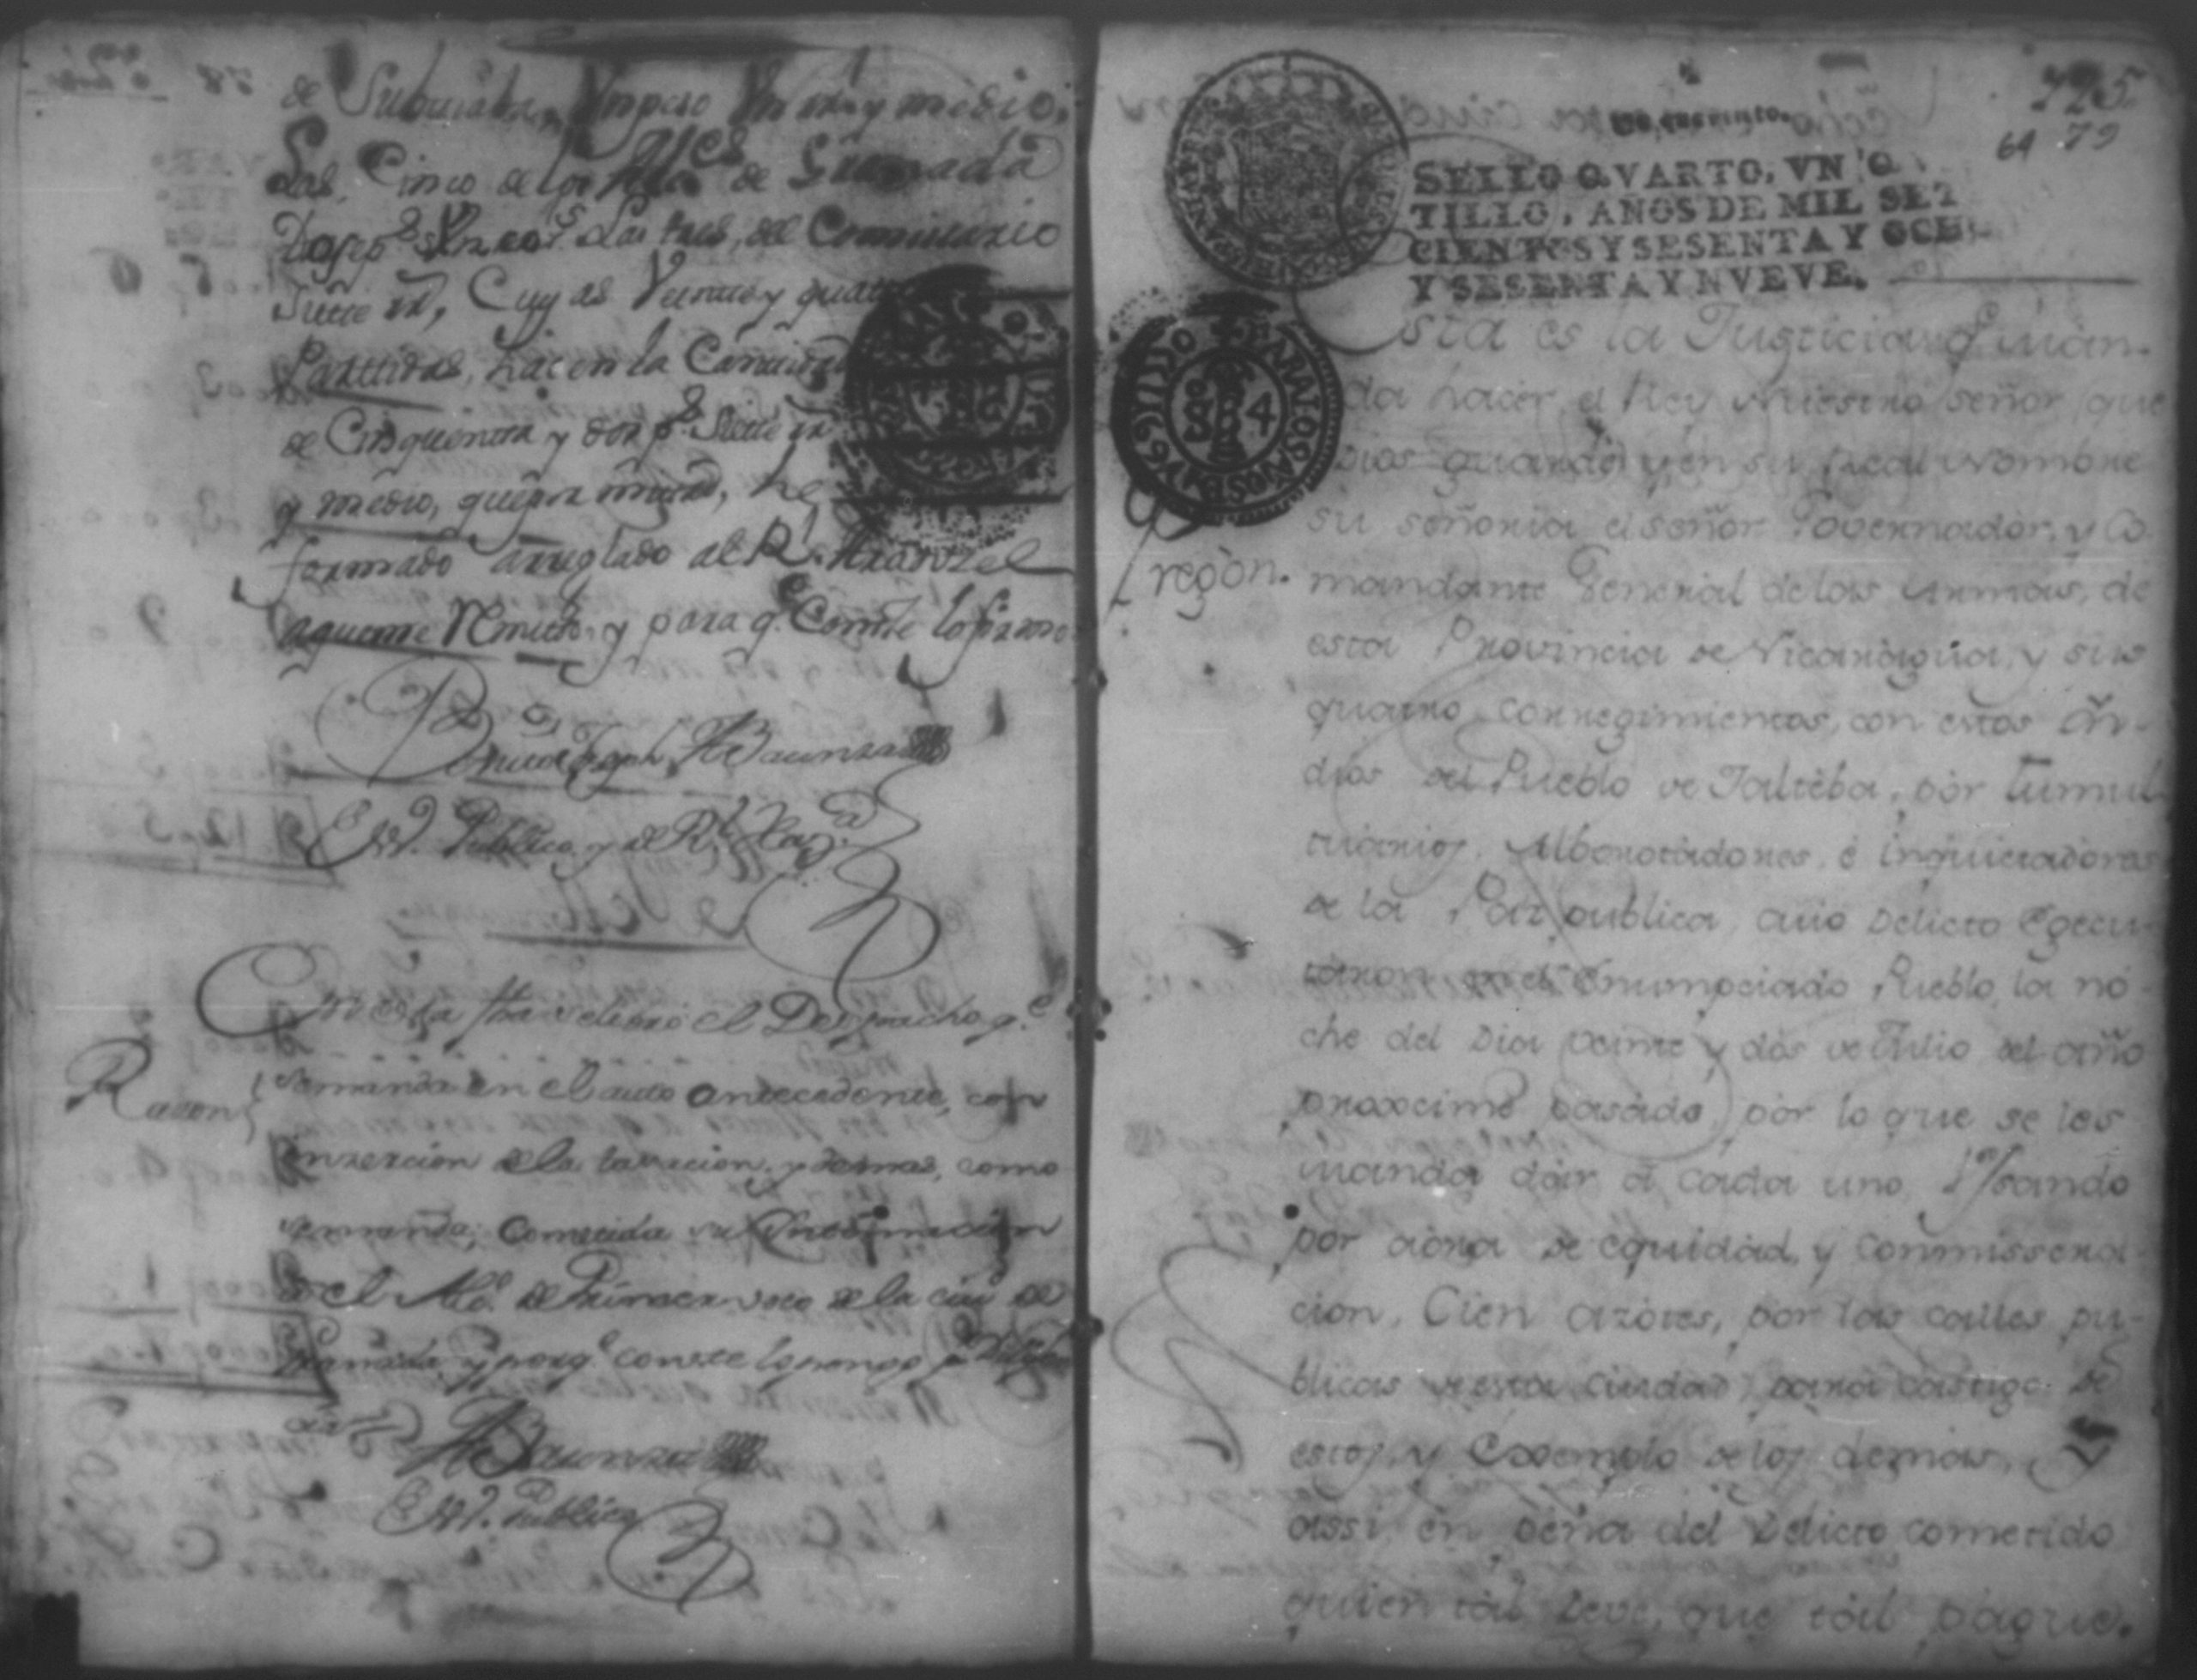 78
de
un peso un rl y medio,
Las Cinco de los Alces de Granada
Dos ps Las tres, del Comissario
Siette rs, Cuyas Veinte y quatro
Partidas, hacen la Cantidad
de Cinquenta y dos ps Siette rs
y medio, que he
formado arreglado al Rl Aranzel
y para qe Conste lo firmo
Esno. Publico y de Rl Hazda
Razon
En esta fha se libró el Despacho qe
se manda en el auto antecedente, con
inzercion de la tasacion, y demas, como
se manda; cometida su
el Alce. de Primer voto de la ciud de
Granada y porqe conste lo pongo por
Esno. Publico
725
64 79
Un quartillo.
SELLO QVARTO, VN Q
TILLO, AÑOS DE MIL SET
CIENTOS Y SESENTA Y OCH
Y SESENTA Y NVEVE.
Pregòn.
Esta es la Justicia q. man-
da hacer el Rey Nuestro señor (que
Dios guarde) y en su Real Nombre
su señoria el señor Governador, y Co-
mandante General de las Armas, de
esta Provincia de Nicaragua, y sus
quatro corregimientos, con estos Yn-
dios del Pueblo de Jaltéba, pòr tumul-
tuarios, Alborotadores, é inquietadores
de la Paz publica, cuio Delicto Egecu-
taron en el Enumpciado Pueblo, la no-
che del Dia veinte y dós de Julio del año
proxcimo pasado, pòr lo que se les
manda dár á cada uno, Vsando
por aora de equidàd, y commissera-
cion, Cien azotes, por las calles pu-
blicas de esta Ciudad, para castigo de
estos, y Exemplo de los demás,
assi, en pena del Delicto cometido
quien tál deve, que tál pague.